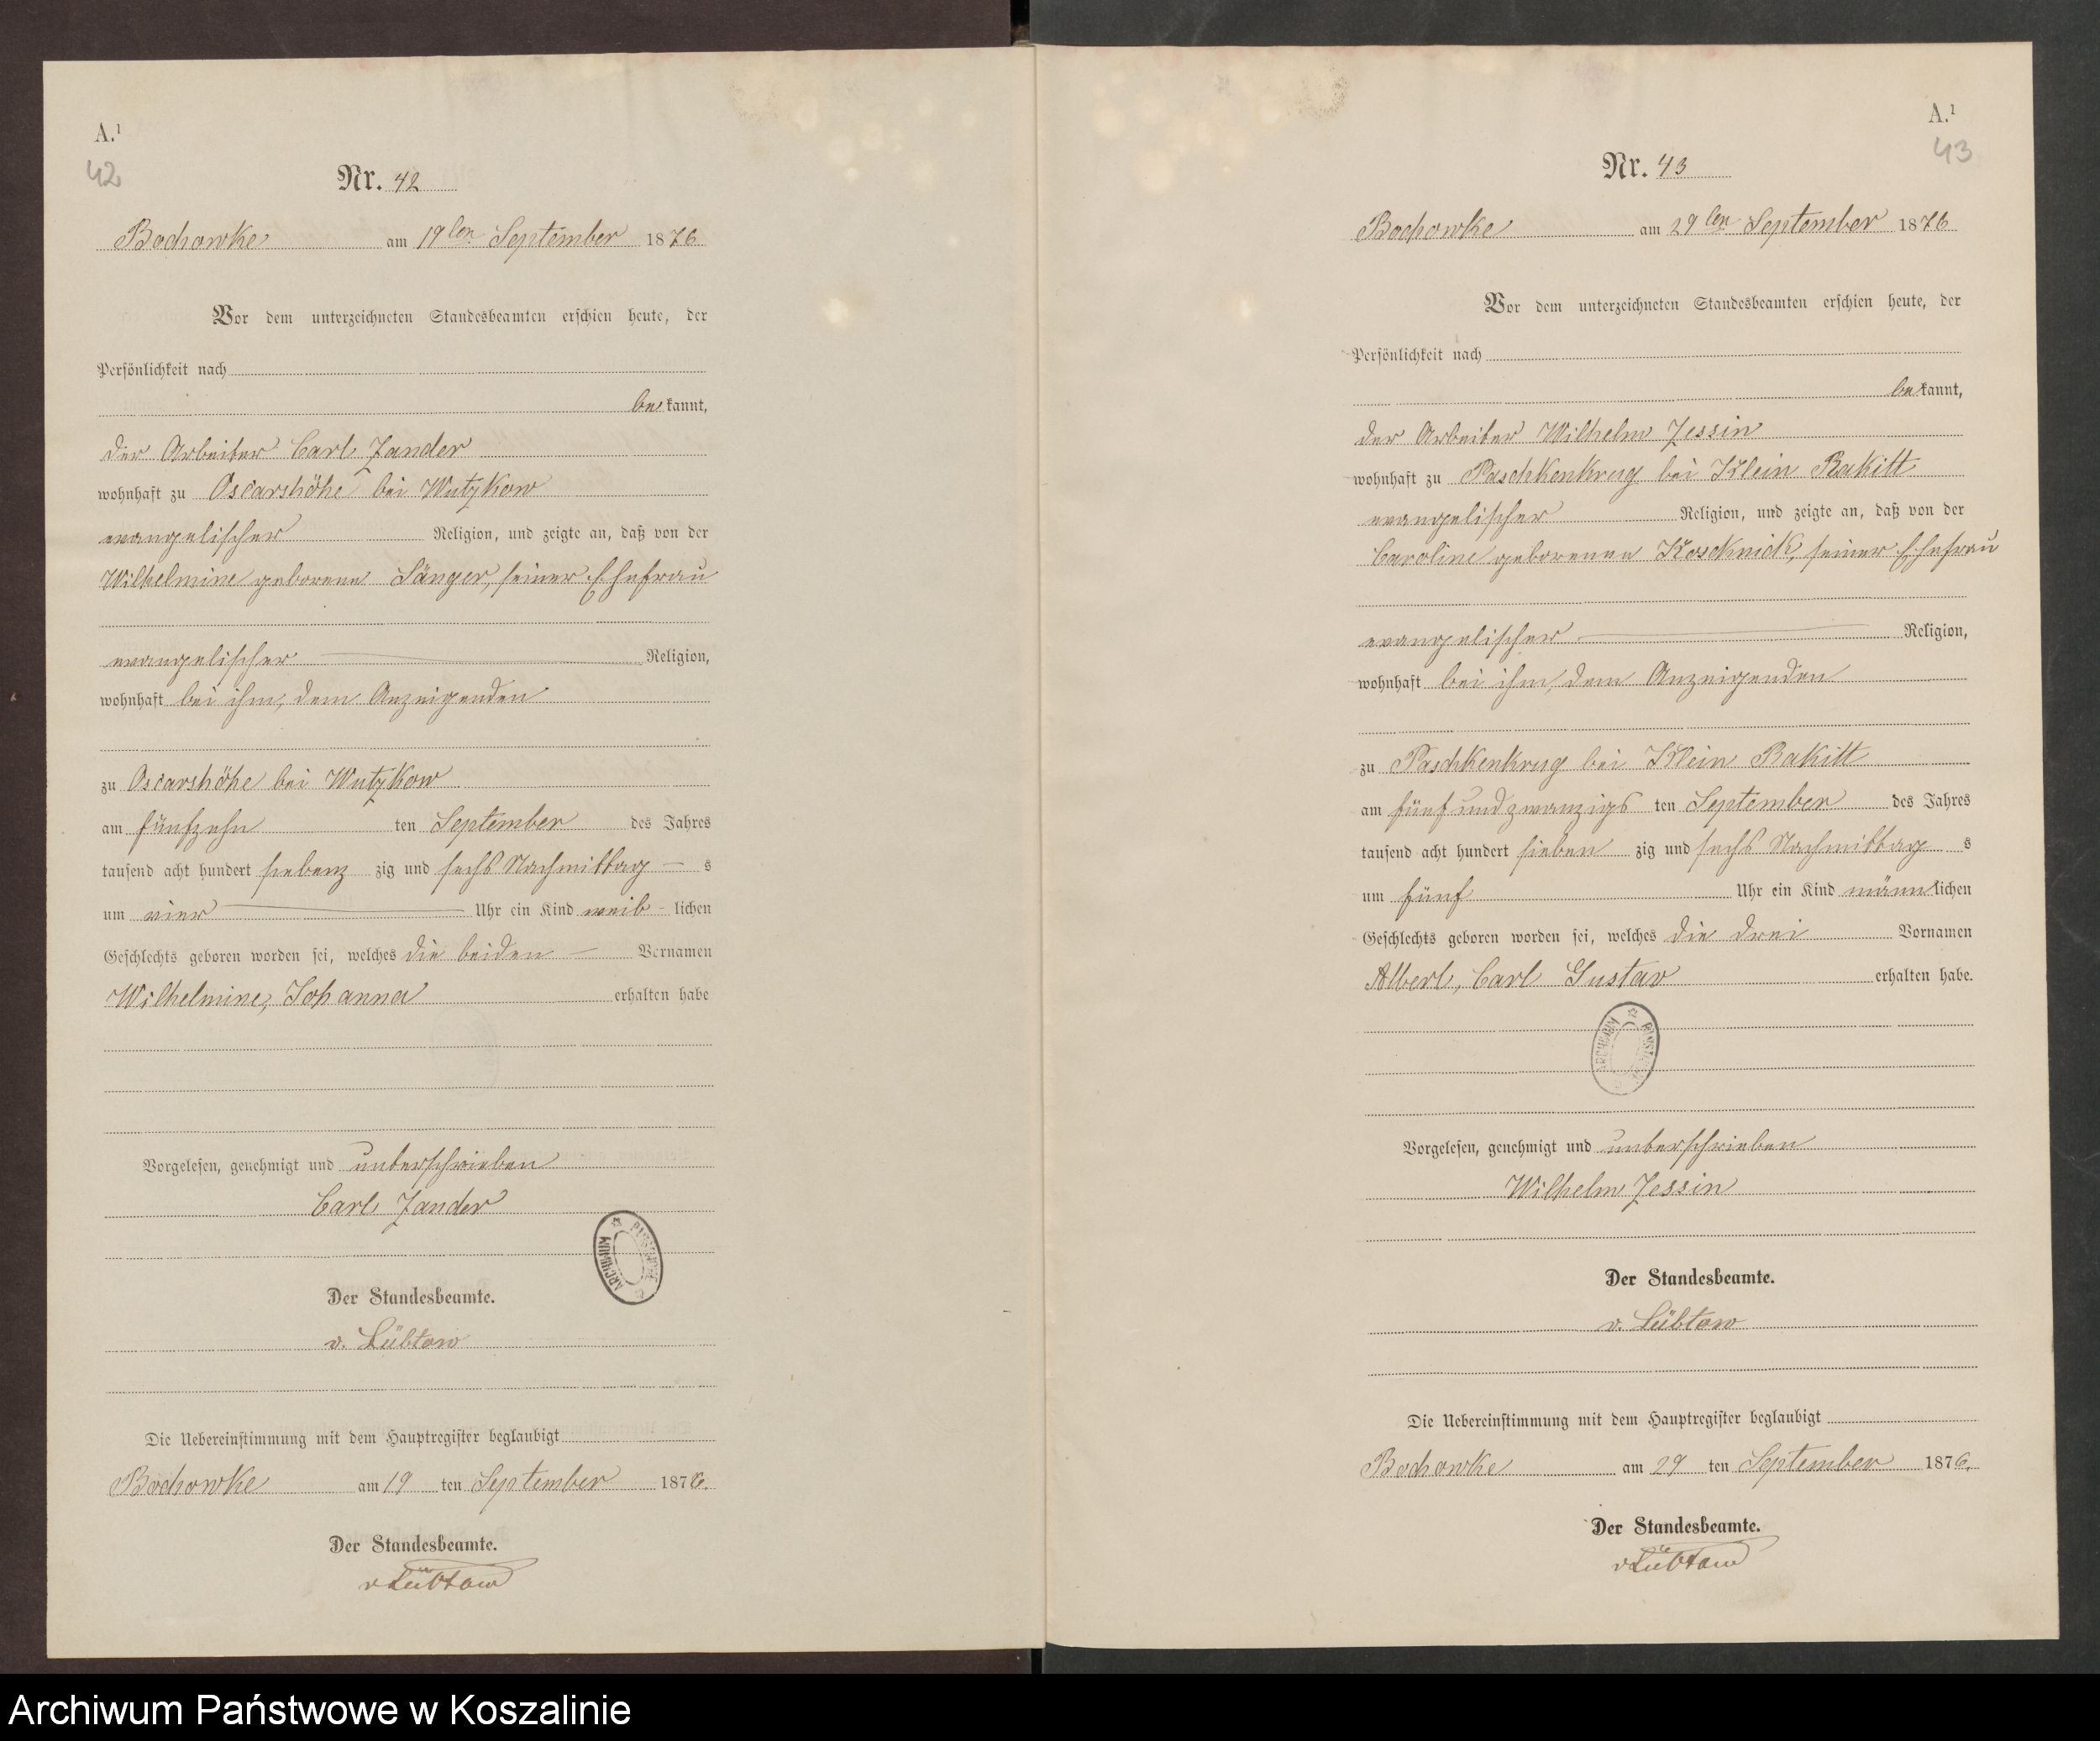 A.¹
42
Nr. 42
Bochowke am 19ten September 1876
Vor dem unterzeichneten Standesbeamten erschien heute, der
Persönlichkeit nach
bekannt,
der Arbeiter Carl Zander
wohnhaft zu Oscarshöhe bei Wutzkow
evangelischer Religion, und zeigte an, daß von der
Wilhelmine geborene Sänger, seiner Ehefrau
evangelischer Religion,
wohnhaft bei ihm, dem Anzeigenden
zu Oscarshöhe bei Wutzkow
am fünfzehn ten September des Jahres
tausend acht hundert siebenz zig und sechs Nachmittag s
um vier Uhr ein Kind weib lichen
Geschlechts geboren worden sei, welches die beiden Vornamen
Wilhelmine, Johanna erhalten habe
Vorgelesen, genehmigt und unterschrieben
Carl Zander
ARCHIWUM
Der Standesbeamte.
v. Lübtow
Die Uebereinstimmung mit dem Hauptregister beglaubigt
Bochowke am 19 ten September 1876.
Der Standesbeamte.
vLübtow
A.¹
43
Nr. 43
Bochowke am 29ten September 1876
Vor dem unterzeichneten Standesbeamten erschien heute, der
Persönlichkeit nach
bekannt,
der Arbeiter Wilhelm Zessin
wohnhaft zu Paschkenkrug bei Klein Rakitt
evangelischer Religion, und zeigte an, daß von der
Caroline geborenen Koschnick, seiner Ehefrau
evangelischer Religion,
wohnhaft bei ihm, dem Anzeigenden
zu Paschkenkrug bei Klein Rakitt
am fünfundzwanzigs ten September des Jahres
tausend acht hundert sieben zig und sechs Nachmittag s
um fünf Uhr ein Kind männlichen
Geschlechts geboren worden sei, welches die drei Vornamen
Albert, Carl Gustav erhalten habe.
ARCHIWUM
Vorgelesen, genehmigt und unterschrieben
Wilhelm Zessin
Der Standesbeamte.
v. Lübtow
Die Uebereinstimmung mit dem Hauptregister beglaubigt
Bochowke am 29 ten September 1876.
Der Standesbeamte.
vLübtow
Archiwum Państwowe w Koszalinie